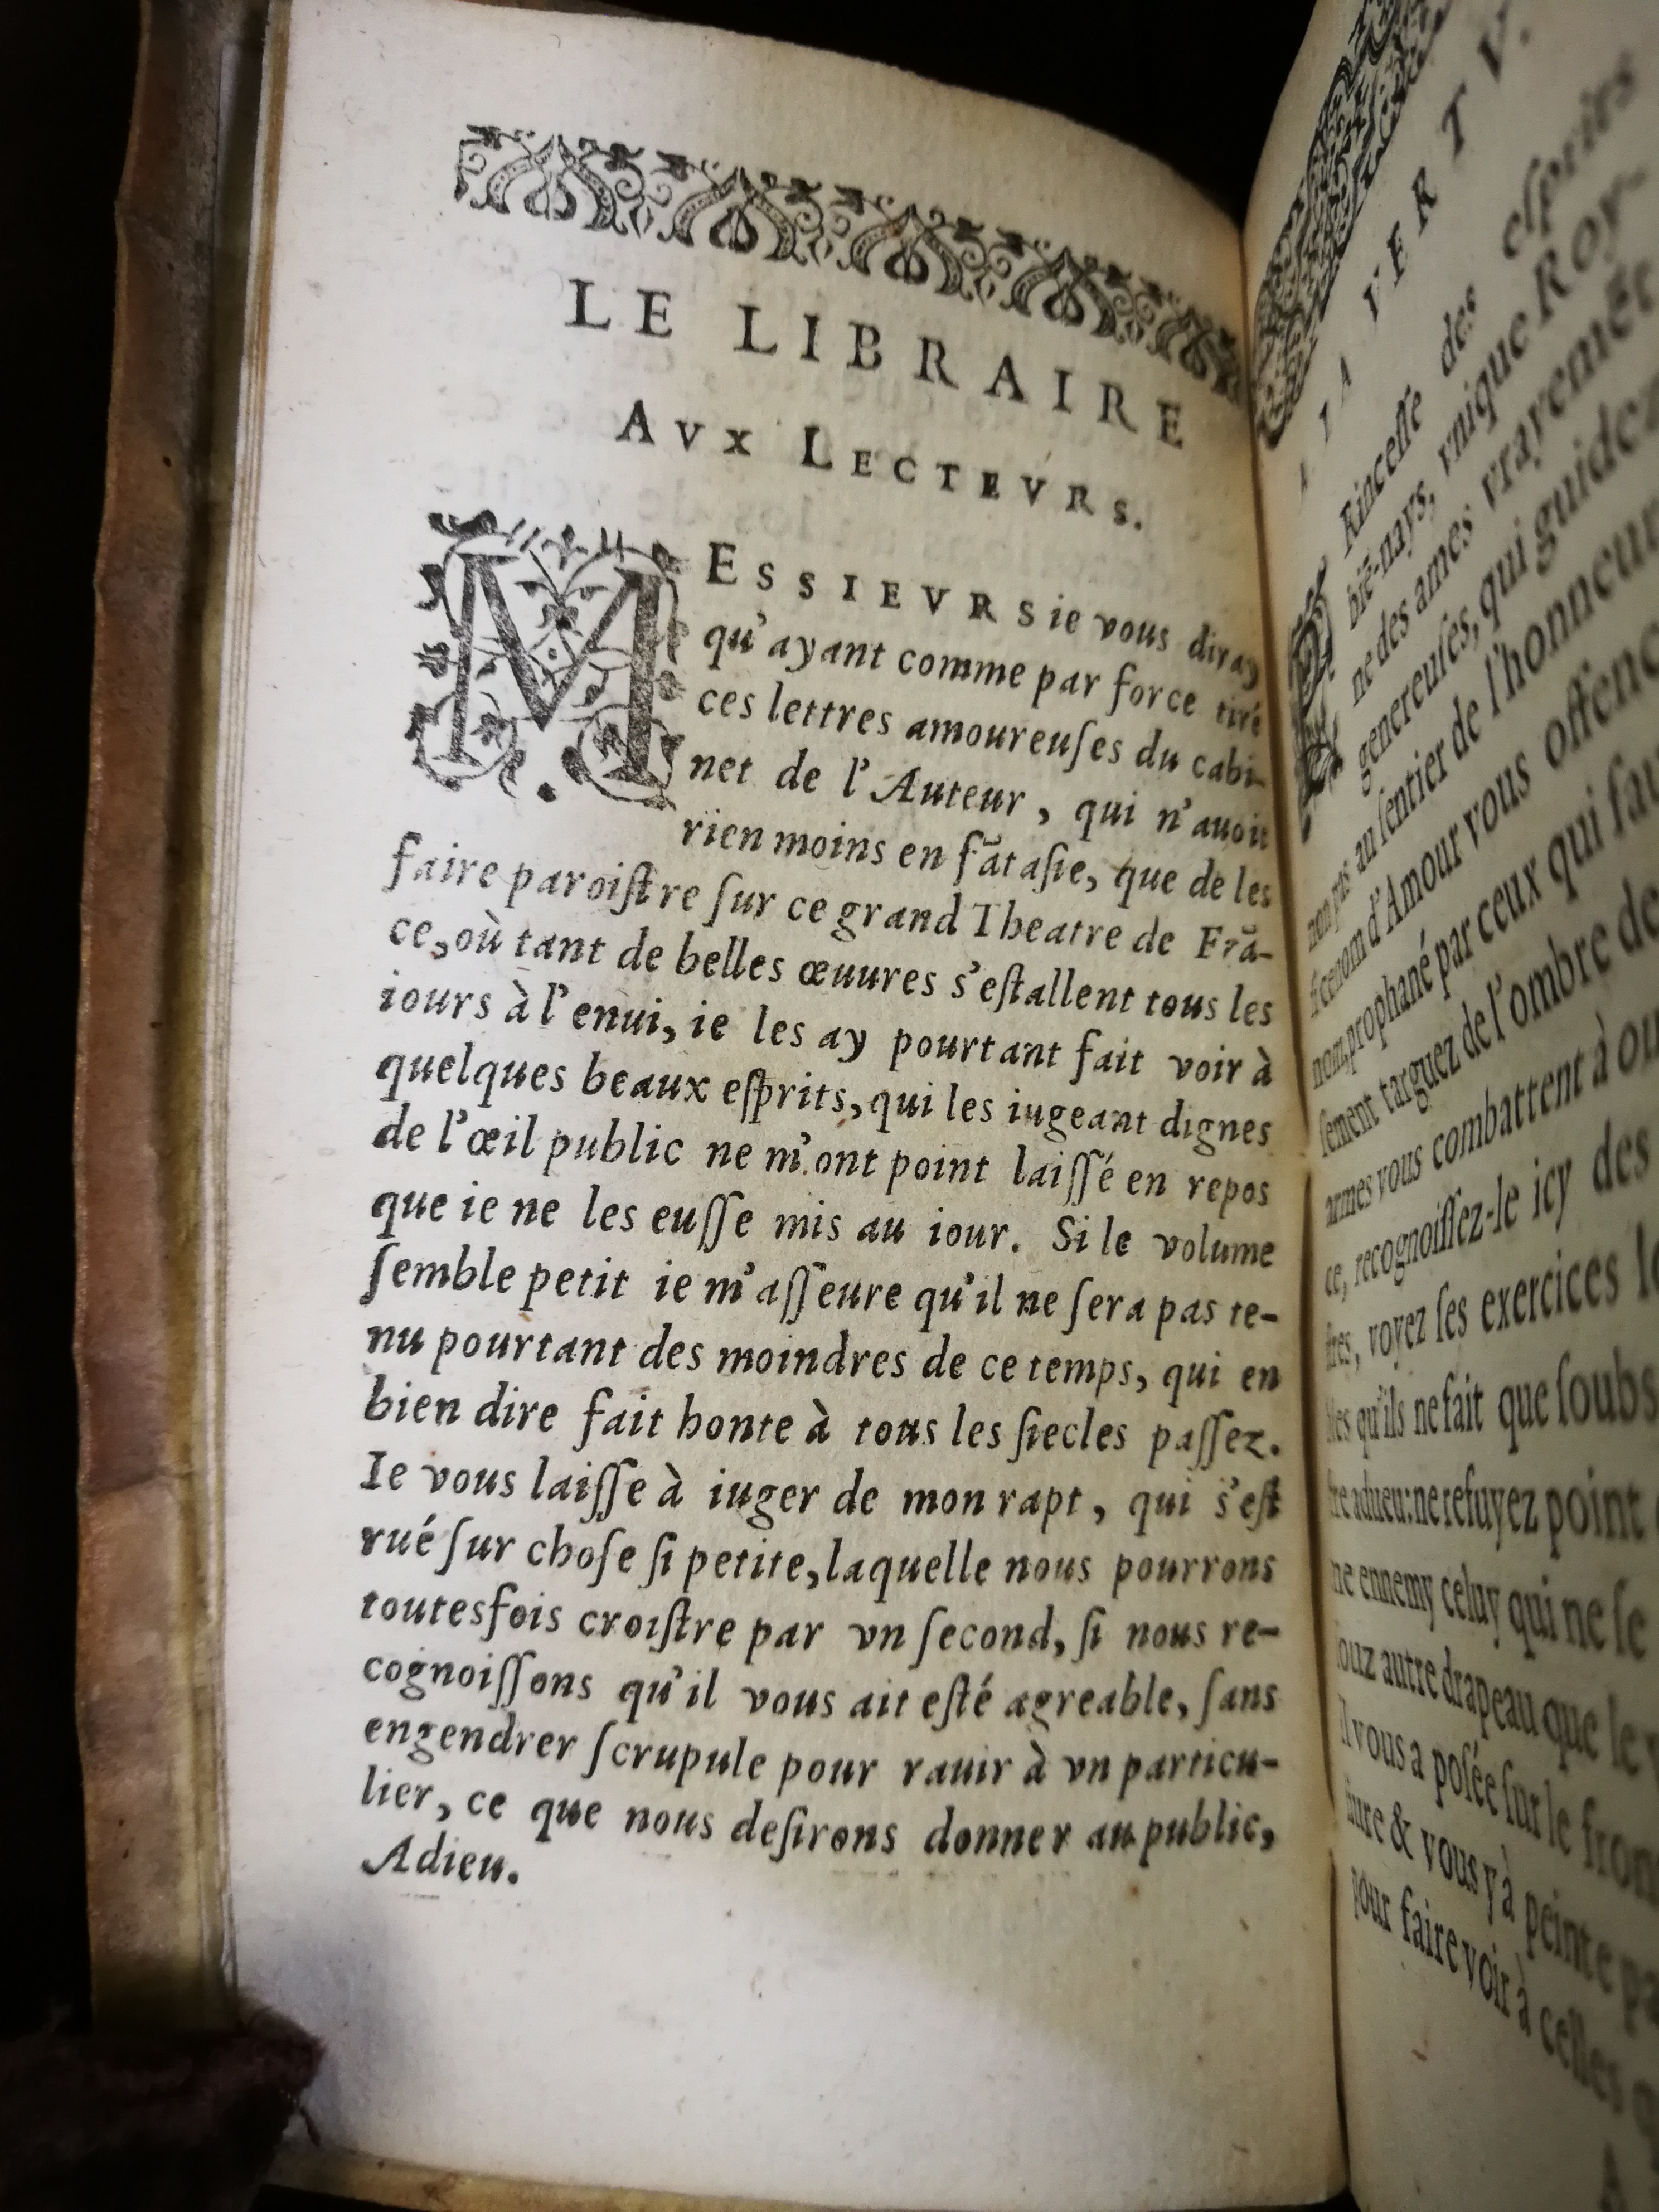 LE LIBRAIRE
AVX LECTEVRS.
MESSIEVRS ie vous diray
qu'ayant comme par force tiré
ces lettres amoureuſes du cabi-
net de l'Auteur, qui n'auoit
rien moins en fãtaſie, que de les
faire paroiſtre ſur ce grand Theatre de Frã-
ce, où tant de belles œuures s'eſtallent tous les
iours à l'enui, ie les ay pourtant fait voir à
quelques beaux eſprits, qui les iugeant dignes
de l'œil public ne m'ont point laiſſé en repos
que ie ne les euſſe mis au iour. Si le volume
ſemble petit ie m'aſſeure qu'il ne ſera pas te-
nu pourtant des moindres de ce temps, qui en
bien dire fait honte à tous les ſiecles paſſez.
Ie vous laiſſe à iuger de mon rapt, qui s'eſt
rué ſur choſe ſi petite, laquelle nous pourrons
toutesfois croiſtre par vn ſecond, ſi nous re-
cognoiſſons qu'il vous ait eſté agreable, ſans
engendrer ſcrupule pour rauir à vn particu-
lier, ce que nous deſirons donner au public,
Adieu.
A LA VERTV.
Rinceſſe des eſprits
biẽ-nays, vnique Roy-
ne des ames vrayemẽt
genereuſes, qui guidez
non pas au ſentier de l'honneur
ſi ce nom d'Amour vous offenc
nom, prophané par ceux qui fau
ſement targuez de l'ombre de
armes vous combattent à ou
ce, recognoiſſez-le icy des
tres, voyez ſes exercices
les qu'ils ne fait que ſoubs
tre adieu: ne refuyez point
ne ennemy celuy qui ne ſe
ſouz autre drapeau que le
il vous a poſée ſur le fron
iure & vous y à peinte
pour faire voir à celles